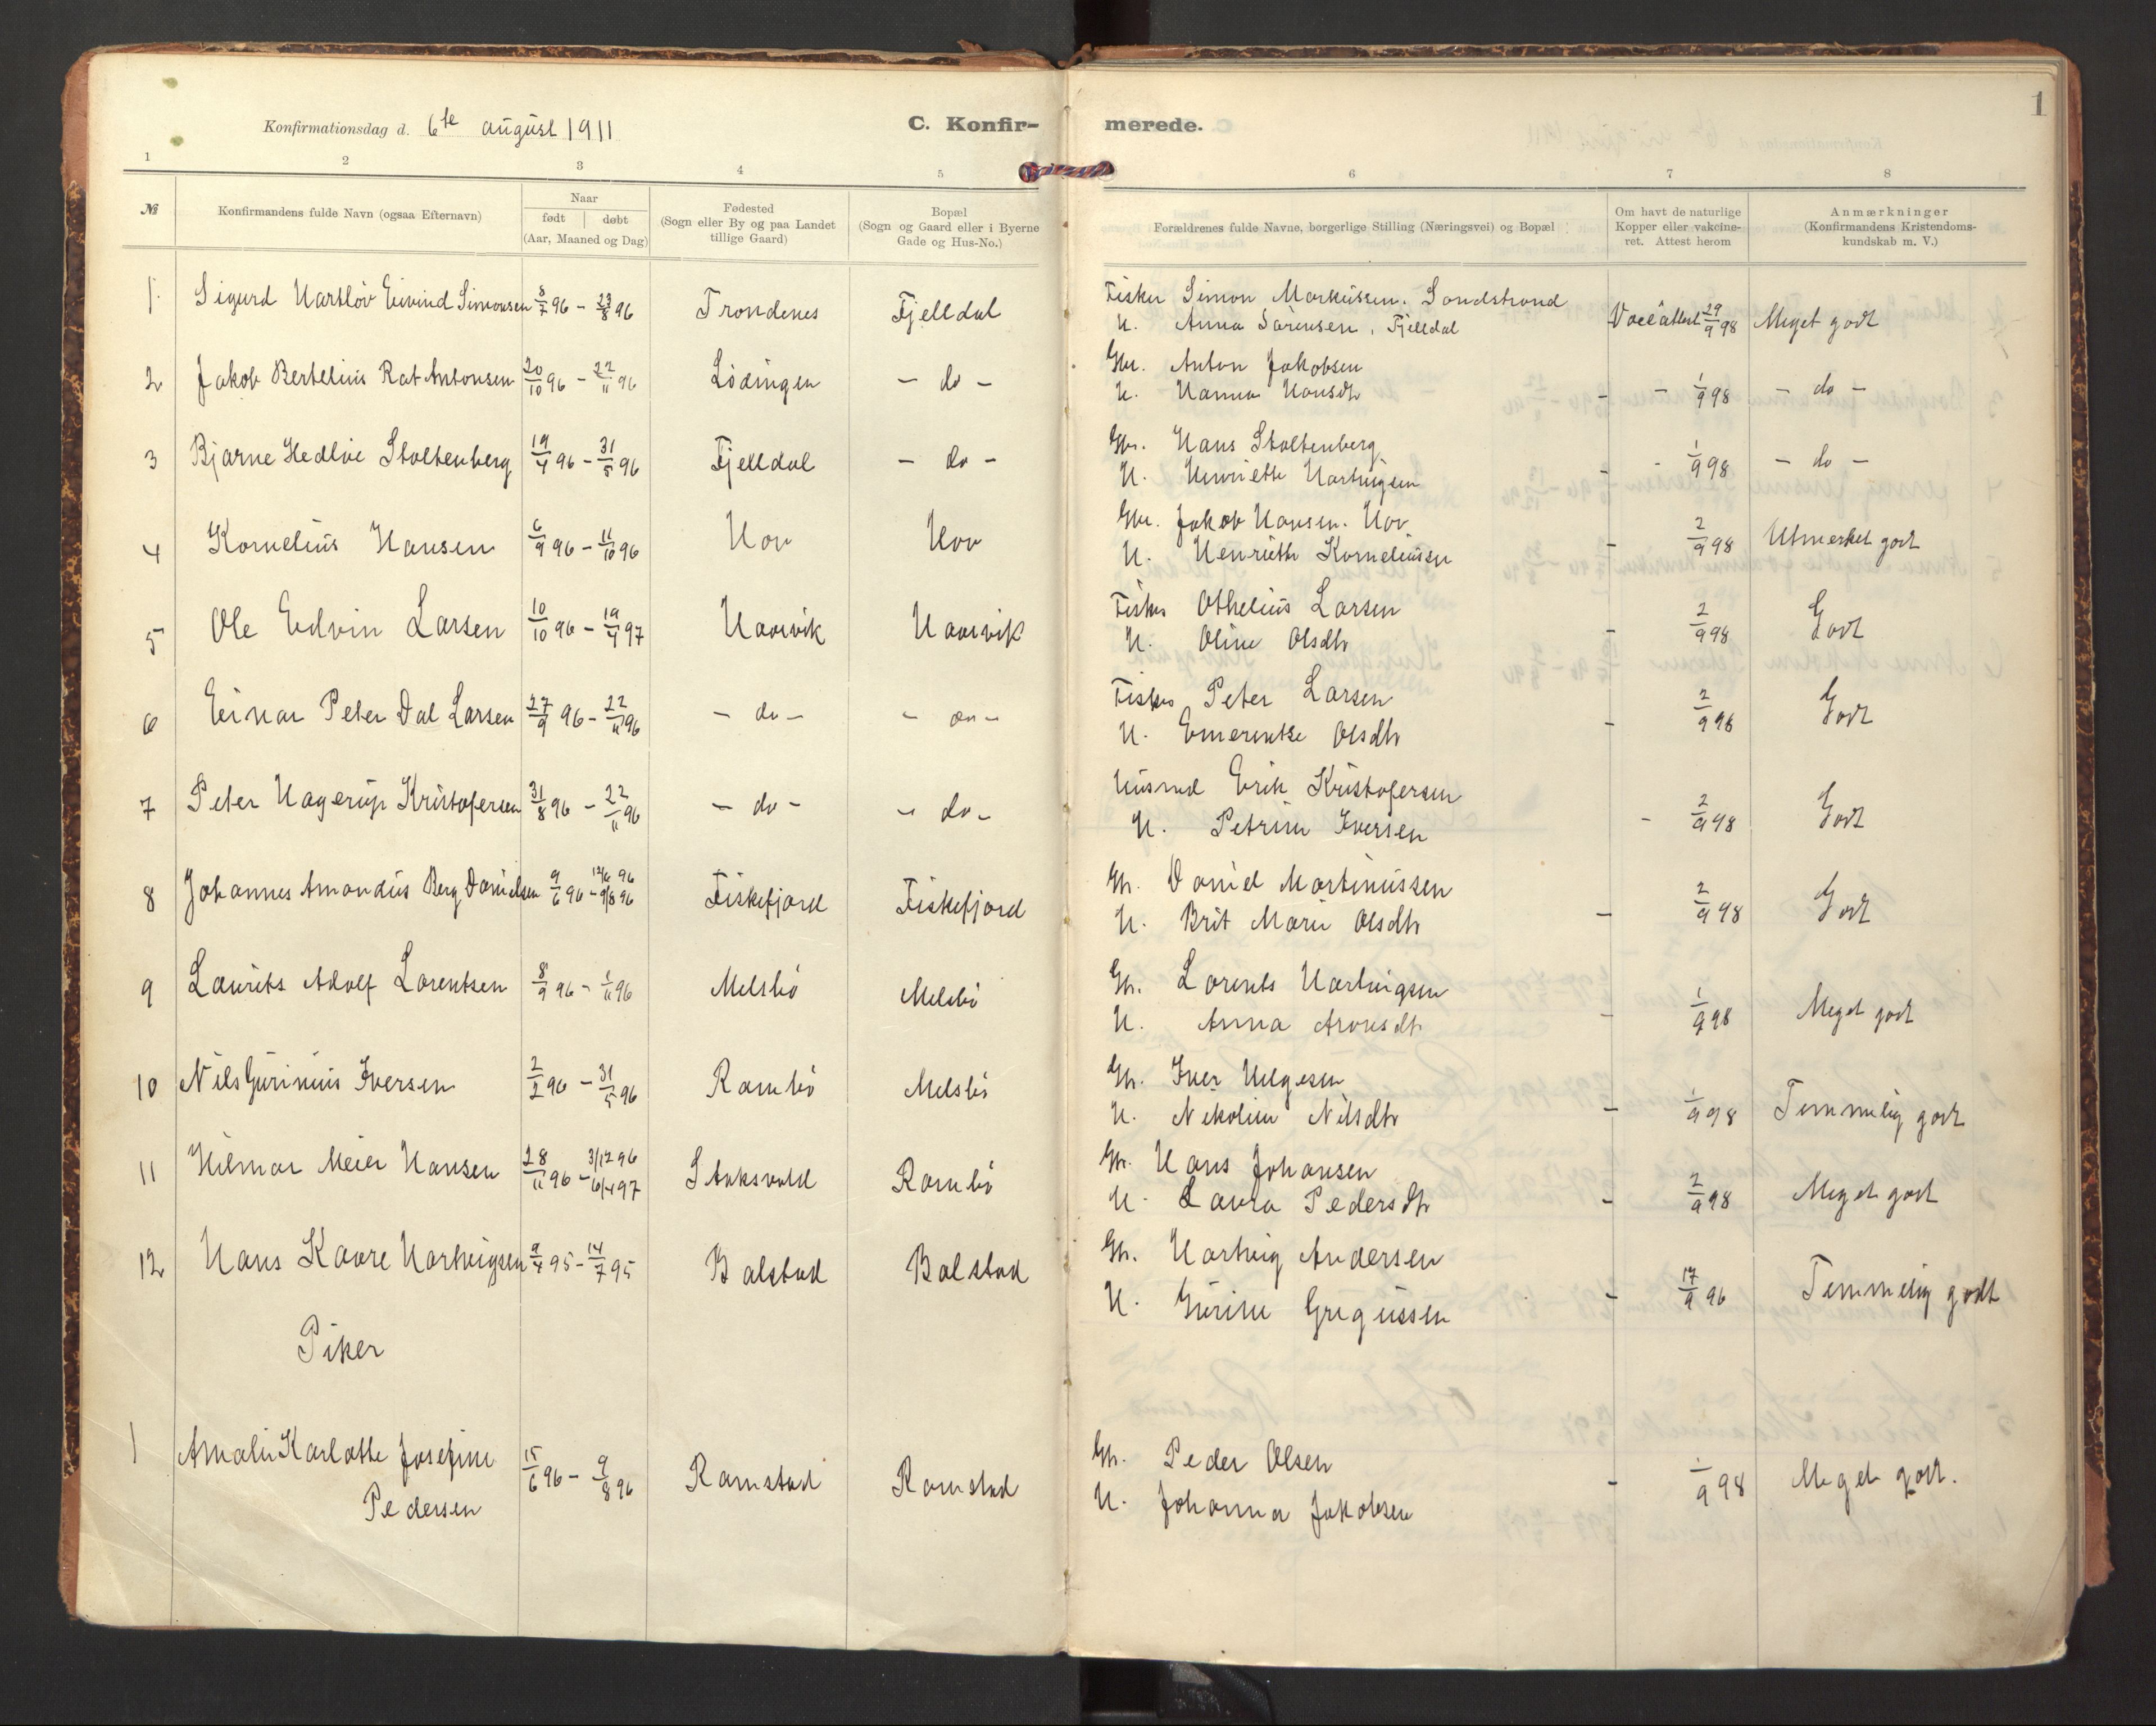 1
Konfirmationsdag d. 6te august 1911
C. Konfir-
merede.
1 2 3 4 5 6 7 8
№
Konfirmandens fulde Navn (ogsaa Efternavn)
Naar
født døbt
(Aar, Maaned og Dag)
Fødested
(Sogn eller By og paa Landet
tillige Gaard)
Bopæl
(Sogn og Gaard eller i Byerne
Gade og Hus-No.)
Forældrenes fulde Navne, borgerlige Stilling (Næringsvei) og Bopæl
Om havt de naturlige
Kopper eller vakcine-
ret. Attest herom
Anmærkninger
(Konfirmandens Kristendoms-
kundskab m. V.)
1. Sigurd Hartlöv Eivind Simonsen 8/7 96 - 23/8 96 Trondenes Fjelldal
Fisker Simon Markussen. Sandstrand
H. Anna Sörensen, Fjelldal
29/9 98 Meget godt
2 Jakob Bertelius Rat Antonsen 20/10 96 - 22/11 96 Lödingen - do -
Gbr. Anton Jakobsen
H. Hanna Hansdtr
- - 1/9 98 - do -
3 Bjarne Hedlöie Stoltenberg 19/4 96 - 31/5 96 Fjelldal - do -
Gbr. Hans Stoltenberg
H. Henriette Hartvigsen
- - 1/9 98 - do -
4 Kornelius Hansen 6/9 96 - 11/10 96 Hov Hov
Gbr. Jakob Hansen. Hov
H. Henriette Korneliussen
- 2/9 98 Utmerket godt
5 Ole Edvin Larsen 10/10 96 - 19/4 97 Haarvik Haarvik
Fisker Othelius Larsen
H. Oline Olsdtr
- 2/9 98 Godt
6 Einar Peter Dal Larsen 27/9 96 - 22/11 96 - do - - do -
Fisker Peter Larsen
H. Emerentse Olsdtr
- 2/9 98 Godt
7 Peter Hagerup Kristofersen 31/8 96 - 22/11 96 - do - - do -
Husmd Erik Kristofersen
H. Petrine Iversen
- 2/9 98 Godt
8 Johannes Amandus Berg Danielsen 9/6 96 - 12/6 96 9/8 96 Fiskefjord Fiskefjord
Gbr. Daniel Martinussen
H. Brit Marie Olsdtr
- 2/9 98 Godt
9 Laurits Adolf Lorentsen 8/9 96 - 1/11 96 Melsbö Melsbö
Gbr. Lorents Hartvigsen
H. Anna Aronsdtr
- 1/9 98 Meget godt
10 Nils Gurinius Iversen 2/2 96 - 31/5 96 Rambö Melsbö
Gbr. Iver Helgesen
H. Nikoline Nilsdtr
- 1/9 98 Temmelig godt
11 Hilmar Meier Hansen 28/11 96 - 3/12 96 6/4 97 Staksvold Rambö
Gbr. Hans Johansen
H. Laura Pedersdtr
- 2/9 98 Meget godt
12 Hans Kaare Hartvigsen 9/4 95 - 14/7 95 Balstad Balstad
Gbr. Hartvig Andersen
H. Gurine Gregussen
- 17/9 96 Temmelig godt
Piker
1 Amalie Karlotte Josefine
Pedersen 15/6 96 - 9/8 96 Ramstad Ramstad
Gbr. Peder Olsen
H. Johanna Jakobsen
- 1/9 98 Meget godt.